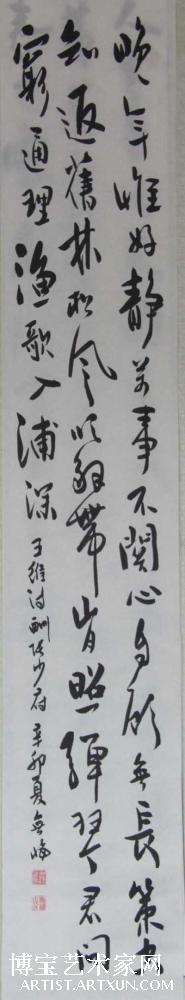 晚年惟好靜萬事不關心自顧無長策空
知返舊林松風吹解帶山月照彈琴君問
窮通理漁歌入浦深 王維詩酬張少府 辛卯夏無峰
博宝艺术家网
ARTIST.ARTXUN.COM